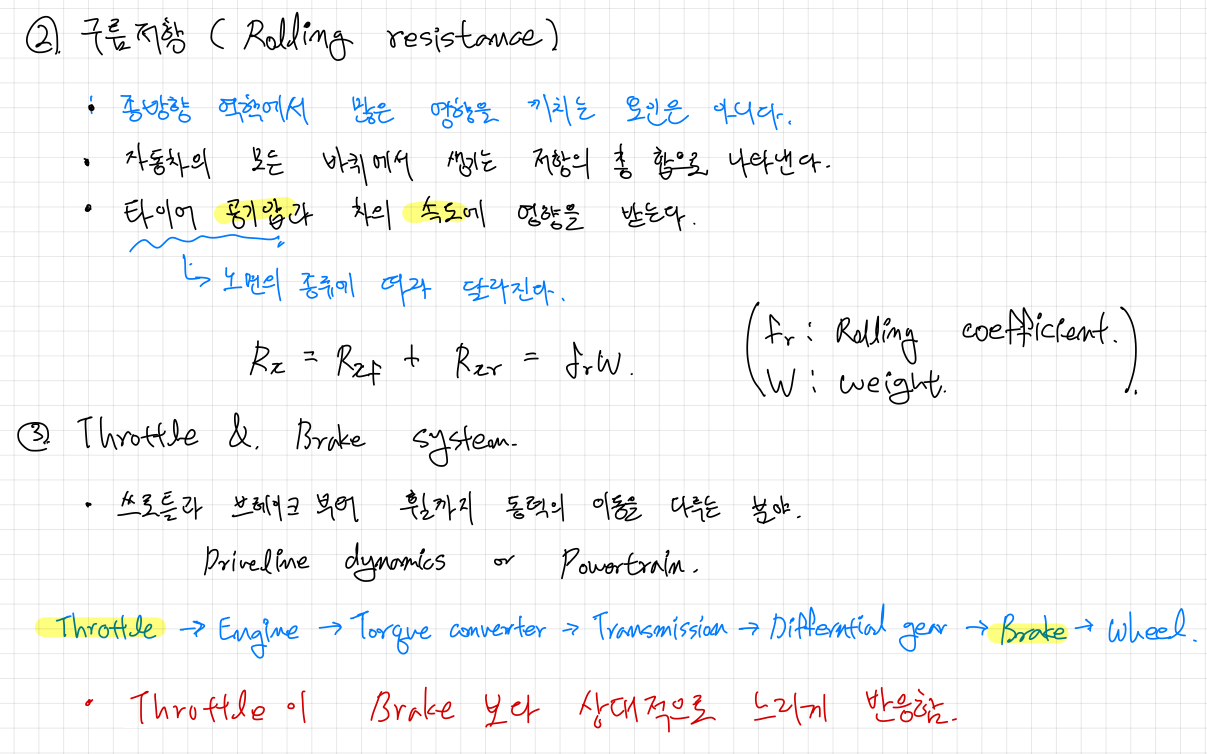 ② 구름저항 ( Rolling resistance )
• 종방향 역학에서 많은 영향을 끼치는 요인은 아니다.
• 자동차의 모든 바퀴에서 생기는 저항의 총 합으로 나타낸다.
• 타이어 공기압과 차의 속도에 영향을 받는다.
↳ 노면의 종류에 따라 달라진다.
Rx = Rxf + Rxr = frW.
( fr : Rolling coefficient.
W : weight. )
③ Throttle & Brake system.
• 쓰로틀과 브레이크 부터 휠까지 동력의 이동을 다루는 분야.
Driveline dynamics or Powertrain.
Throttle → Engine → Torque converter → Transmission → Differntial gear → Brake → Wheel.
• Throttle이 Brake 보다 상대적으로 느리게 반응함.